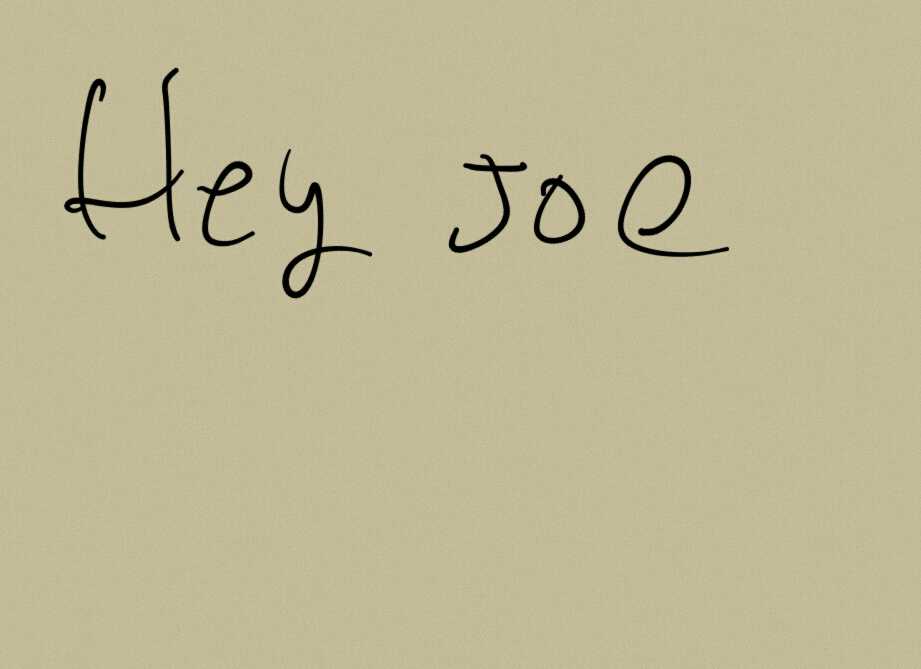 Hey Joe